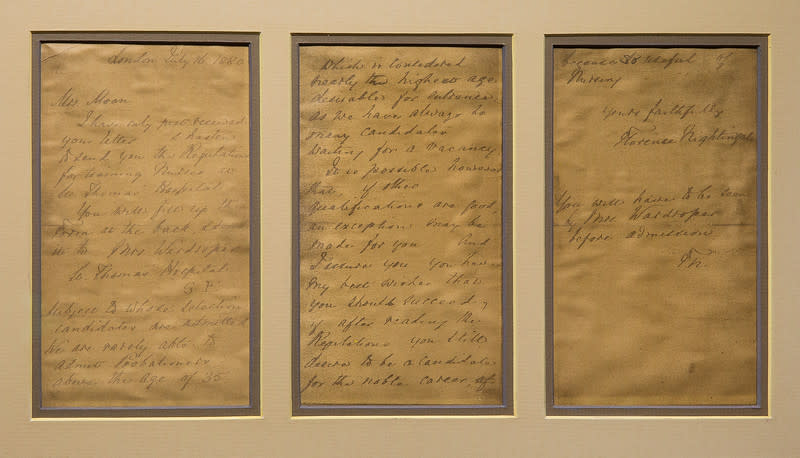 London July 16 1880
Mrs. Moon
I have only just received
your letter & hasten
to send you the Regulations
for training Nurses in
St. Thomas' Hospital
You will fill up the
Form at the back & send
it to Mrs Wardroper
St. Thomas Hospital
subject to whose selection
candidates are admitted
We are rarely able to
admit Probationers
above the age of 35
which is considered
nearly the highest age
desirable for entrance
as we have always so
many candidates
waiting for a vacancy
It is possible however
that, if other
qualifications are good,
an exception may be
made for you And
I assure you you have
my best wishes that
you should succeed,
if after reading the
Regulations you still
desire to be a candidate
for the noble career, of
useful of
Nursing
Yours faithfully
Florence Nightingale
You will have to be seen
by Mrs Wardroper
before admission